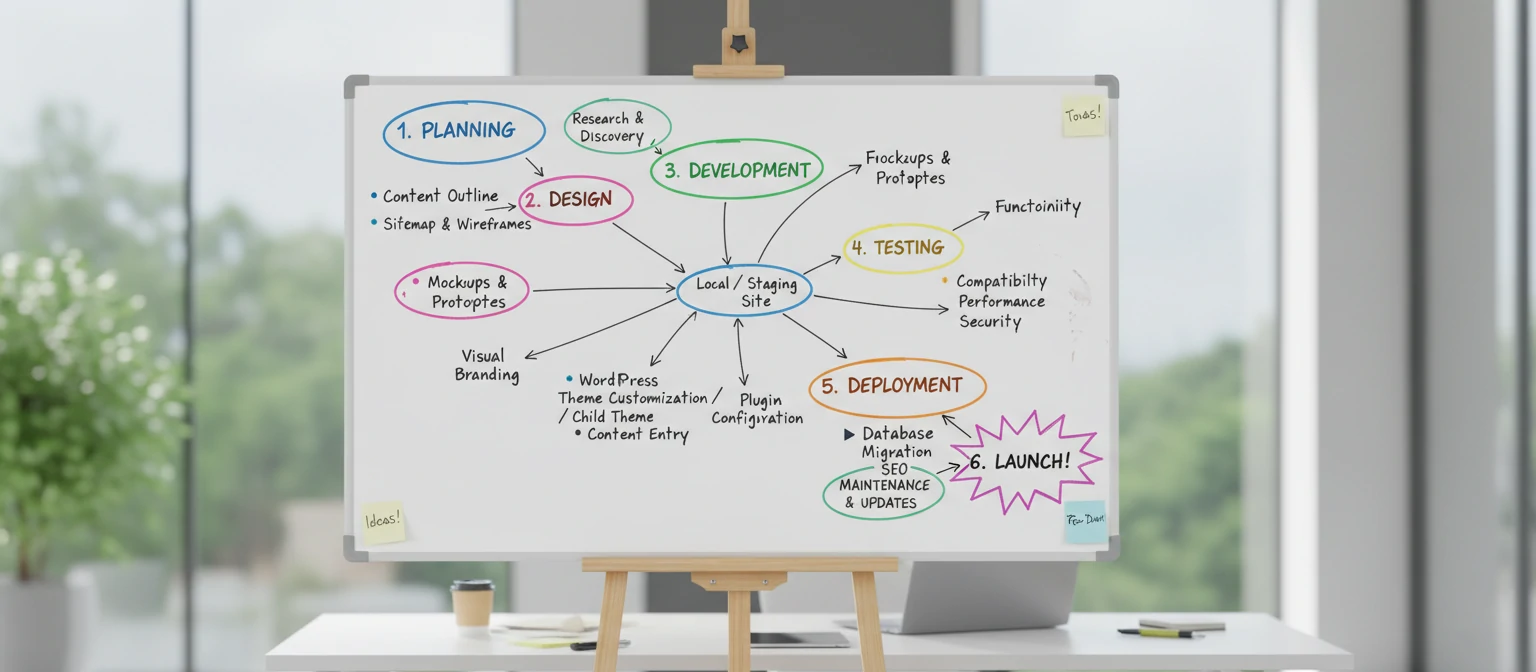 1. PLANNING
Research &
Discovery
Todas!
3. DEVELOPMENT
Frockzups &
Protoptes
Content Outline
2. DESIGN
Sitemap & Wireframes
Functoiniity
4. TESTING
Mockups &
Protoptes
Local / Staging
Site
Compatibilty
Performance
Security
Visual
Branding
WordPress
Theme Custornization /
/ Child Theme
Content Entry
Plugin
Configvration
5. DEPLOYMENT
Database
Migration
SEO
MAINTENANCE
& UPDATES
6. LAUNCH!
Ideas!